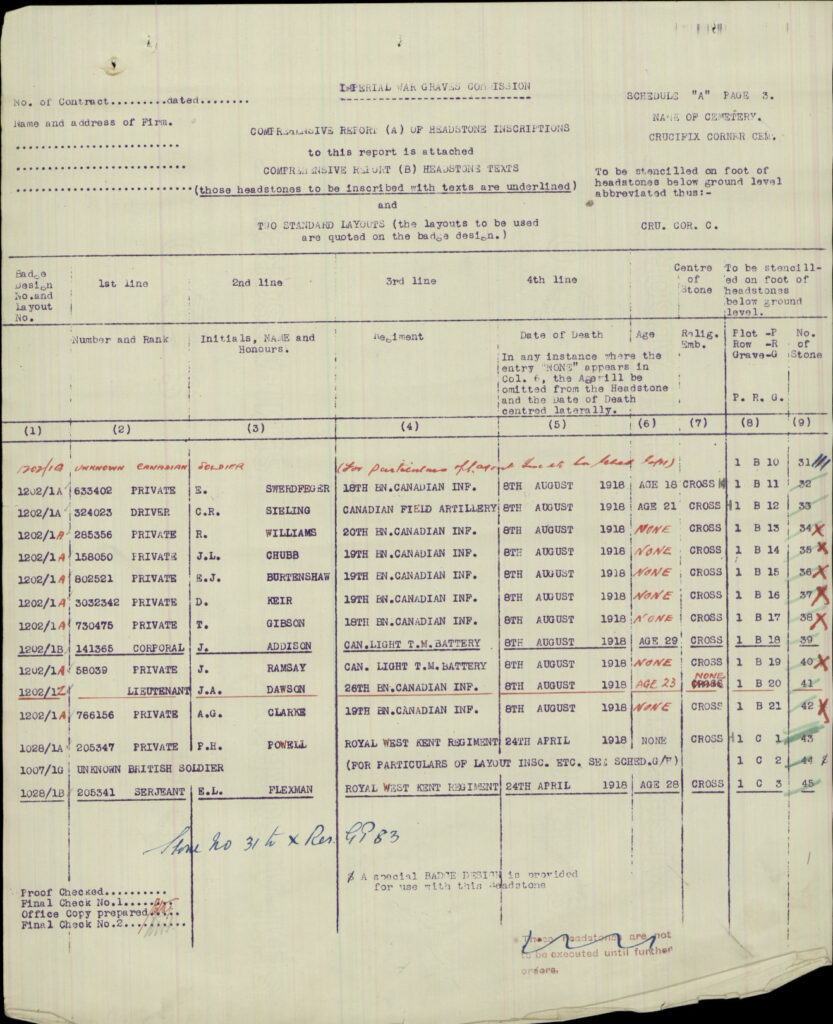 IMPERIAL WAR GRAVES COMMISSION
No. of Contract.........dated........
SCHEDULE "A" PAGE 3.
Name and address of Firm.
NAME OF CEMETERY.
COMPREHENSIVE REPORT (A) OF HEADSTONE INSCRIPTIONS
CRUCIFIX CORNER CEM.
to this report is attached
COMPREHENSIVE REPORT (B) HEADSTONE TEXTS
To be stencilled on foot of
headstones below ground level
(those headstones to be inscribed with texts are underlined)
abbreviated thus:-
and
TWO STANDARD LAYOUTS (the layouts to be used
are quoted on the badge design.)
CRU. COR. C.
Badge Design No.and Layout No. 1st line 2nd line 3rd line 4th line Centre of Stone To be stencill-ed on foot of headstones below ground level.
Number and Rank Initials, NAME and Honours. Regiment Date of Death Age Relig. Emb. Plot -P Row -R Grave-G No. of Stone
In any instance where the
entry "NONE" appears in
Col. 6, the Age will be
omitted from the Headstone
and the Date of Death
centred laterally.
P. R. G.
(1) (2) (3) (4) (5) (6) (7) (8) (9)
1202/1G UNKNOWN CANADIAN SOLDIER (For particulars of layout 1 B 10 31
1202/1A 633402 PRIVATE E. SWERDFEGER 18TH BN.CANADIAN INF. 8TH AUGUST 1918 AGE 18 CROSS 1 B 11 32
1202/1A 324023 DRIVER C.R. SIELING CANADIAN FIELD ARTILLERY 8TH AUGUST 1918 AGE 21 CROSS 1 B 12 33
1202/1A 285356 PRIVATE R. WILLIAMS 20TH BN.CANADIAN INF. 8TH AUGUST 1918 NONE CROSS 1 B 13 34 X
1202/1A 158050 PRIVATE J.L. CHUBB 19TH BN.CANADIAN INF. 8TH AUGUST 1918 NONE CROSS 1 B 14 35 X
1202/1A 802521 PRIVATE E.J. BURTENSHAW 19TH BN.CANADIAN INF. 8TH AUGUST 1918 NONE CROSS 1 B 15 36 X
1202/1A 3032342 PRIVATE D. KEIR 19TH BN.CANADIAN INF. 8TH AUGUST 1918 NONE CROSS 1 B 16 37 X
1202/1A 730475 PRIVATE T. GIBSON 18TH BN.CANADIAN INF. 8TH AUGUST 1918 NONE CROSS 1 B 17 38 X
1202/1B 141365 CORPORAL J. ADDISON CAN.LIGHT T.M.BATTERY 8TH AUGUST 1918 AGE 29 CROSS 1 B 18 39
1202/1A 58039 PRIVATE J. RAMSAY CAN. LIGHT T.M.BATTERY 8TH AUGUST 1918 NONE CROSS 1 B 19 40 X
1202/1Z LIEUTENANT J.A. DAWSON 26TH BN.CANADIAN INF. 8TH AUGUST 1918 AGE 23 NONE CROSS 1 B 20 41
1202/1A 766156 PRIVATE A.G. CLARKE 19TH BN.CANADIAN INF. 8TH AUGUST 1918 NONE CROSS 1 B 21 42 X
1028/1A 205347 PRIVATE F.H. POWELL ROYAL WEST KENT REGIMENT 24TH APRIL 1918 NONE CROSS 1 C 1 43
1007/1G UNKNOWN BRITISH SOLDIER (FOR PARTICULARS OF LAYOUT INSC. ETC. SEE SCHED.G/F) 1 C 2 44
1028/1B 205341 SERJEANT E.L. FLEXMAN ROYAL WEST KENT REGIMENT 24TH APRIL 1918 AGE 28 CROSS 1 C 3 45
Stone No 31
A special BADGE DESIGN is provided
for use with this Headstone
Proof Checked..........
Final Check No.1.....
Office Copy prepared.....
Final Check No.2.....
These headstones are not
to be executed until further
orders.